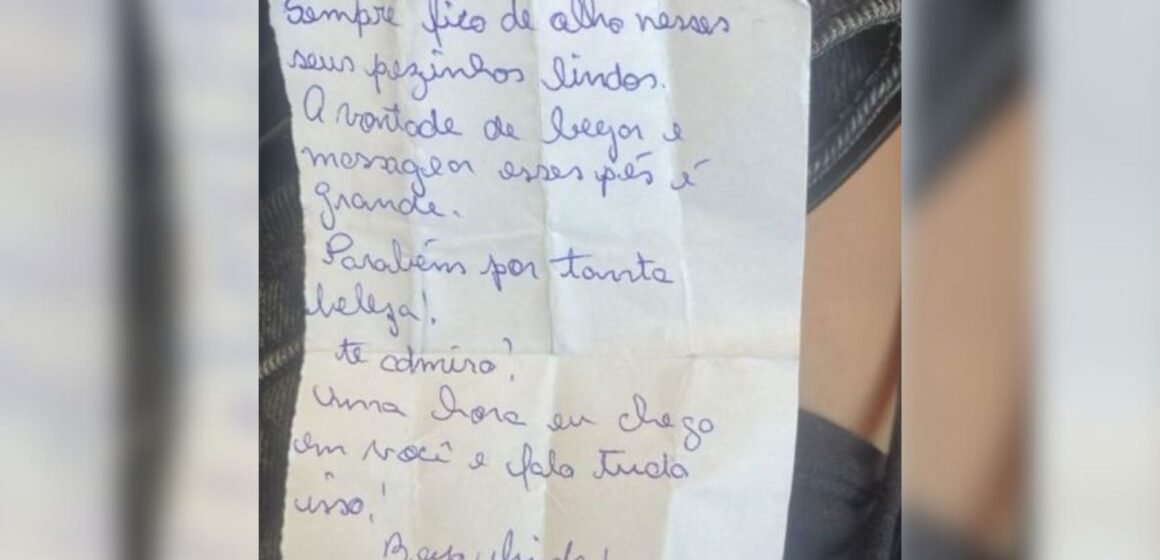 Sempre fico de olho nesses
seus pezinhos lindos.
A vontade de beijar e
massagear esses pés é
grande.
Parabéns por tanta
beleza!
te admiro!
Uma hora eu chego
em você e falo tudo
isso!